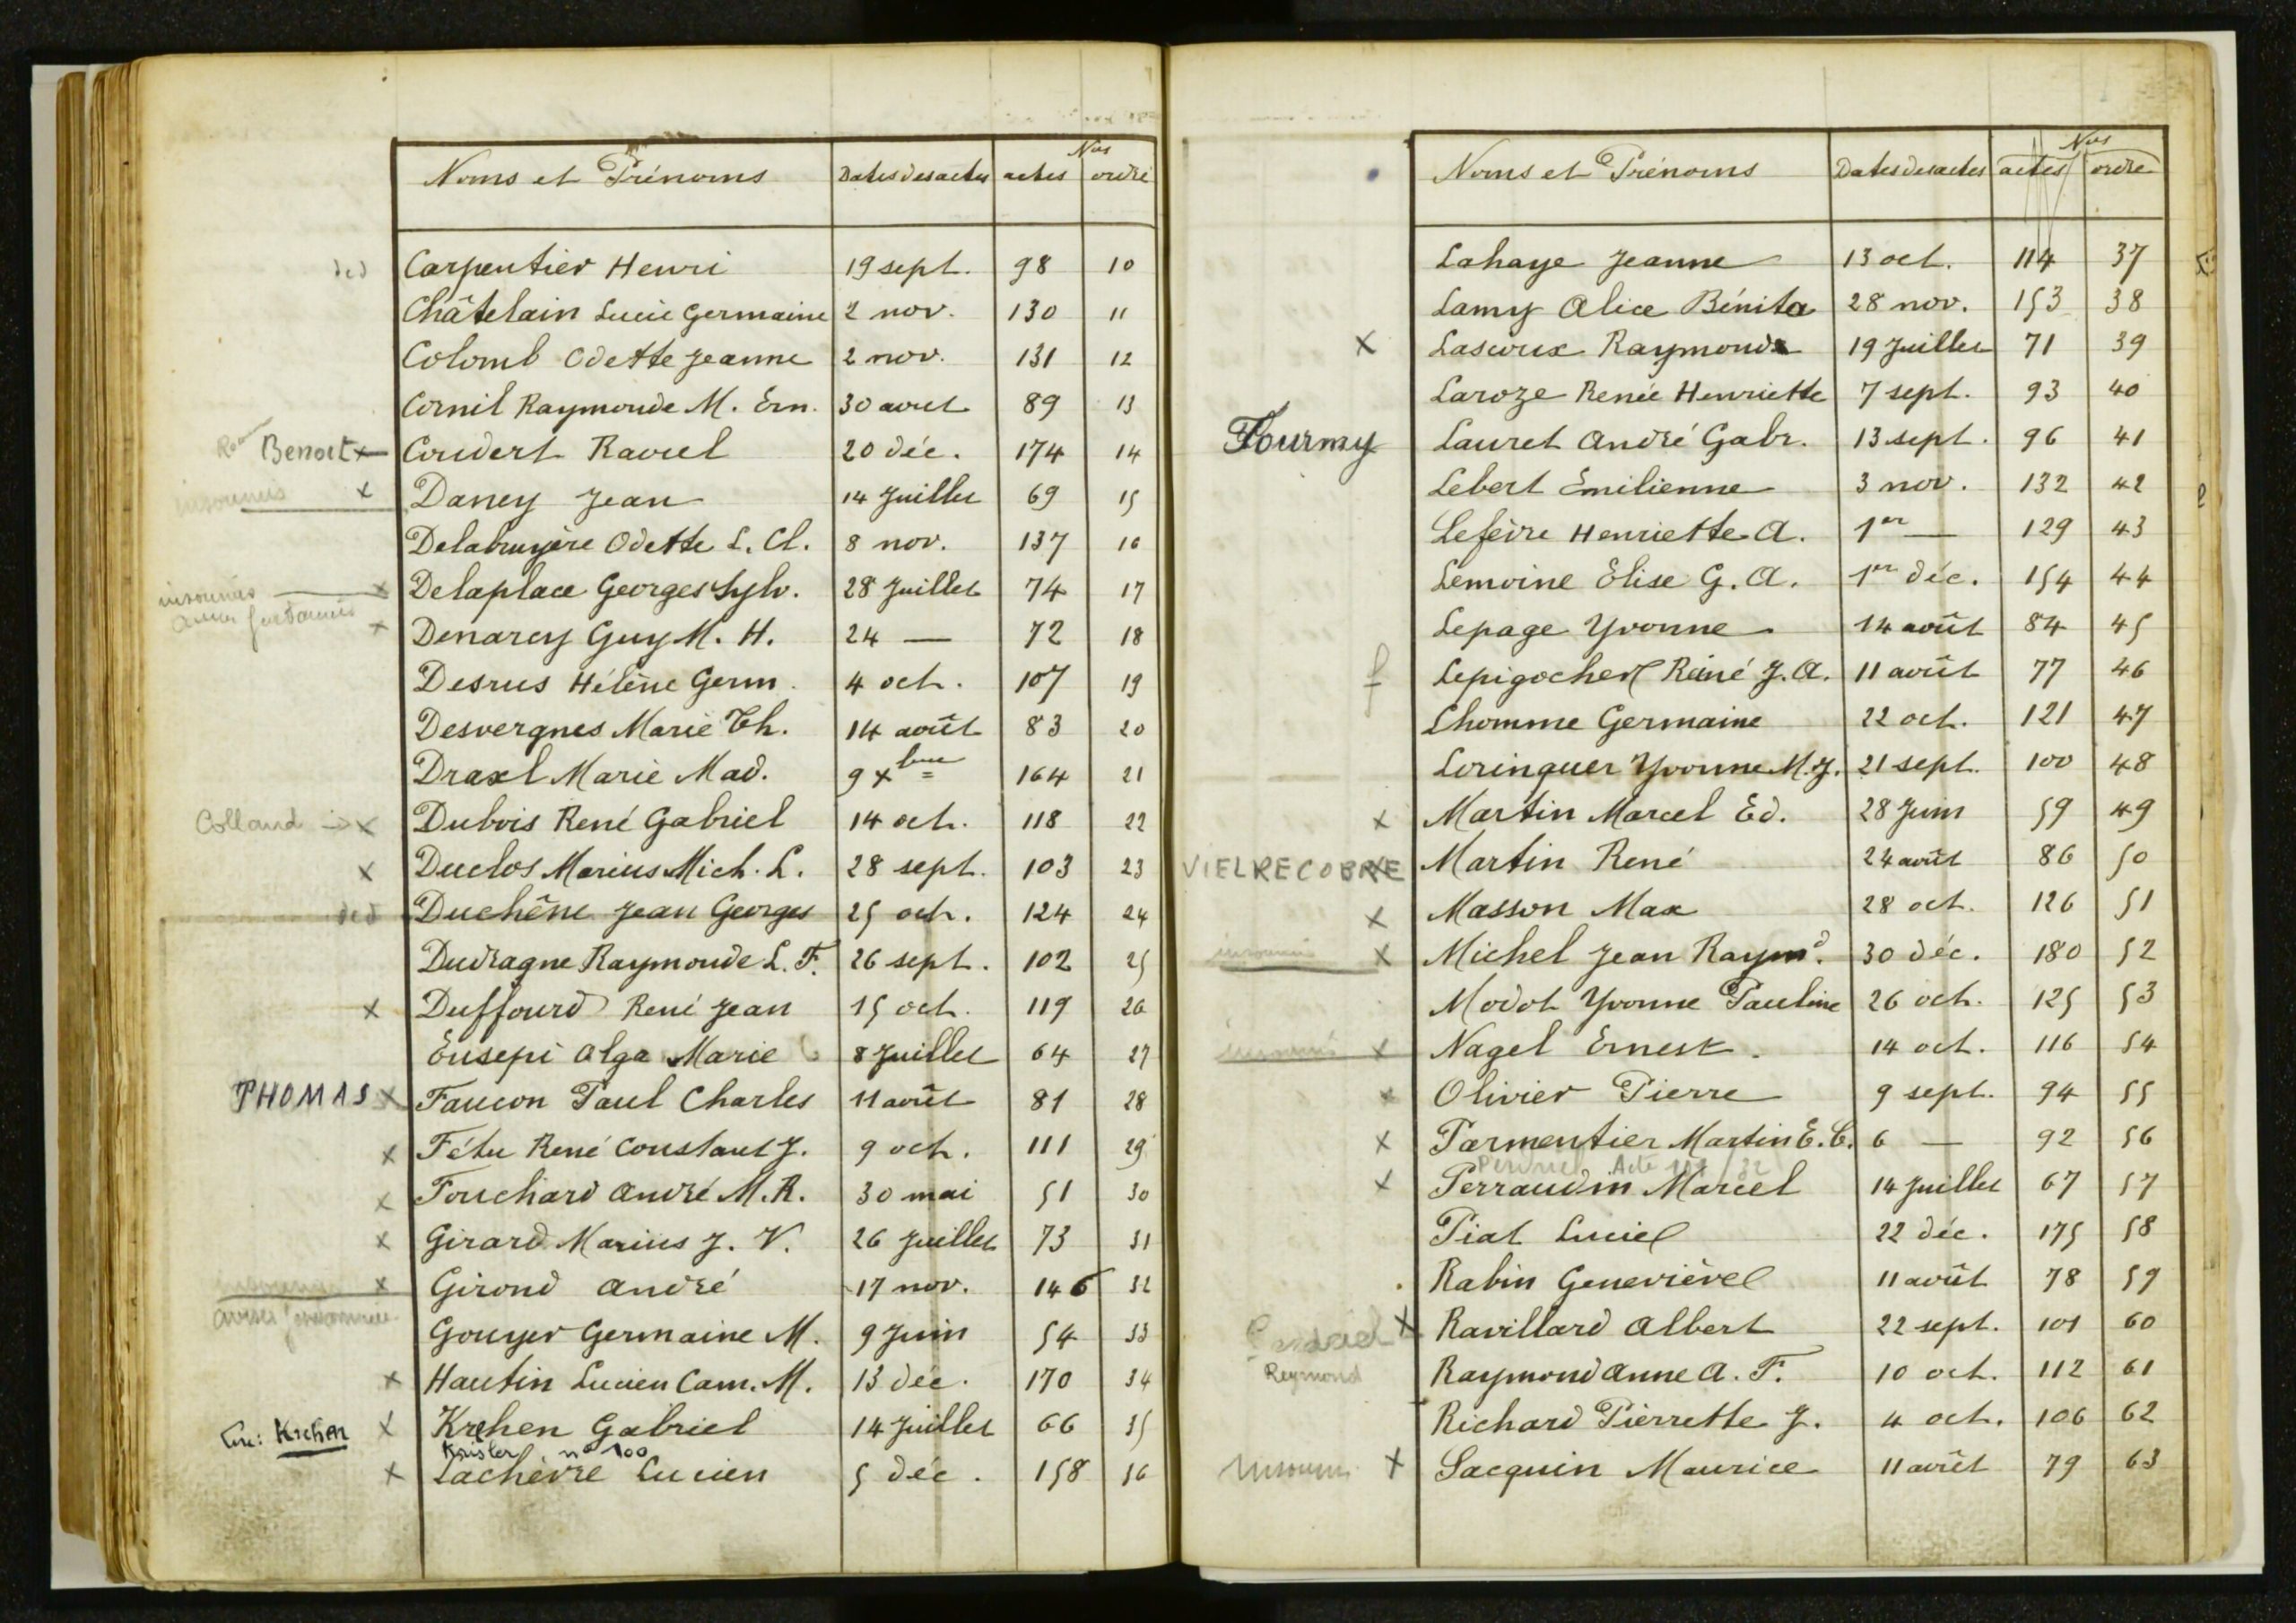 Nos
Noms et Prénoms Dates des actes actes ordre
ded Carpentier Henri 19 sept. 98 10
Châtelain Lucie Germaine 2 nov. 130 11
Colomb Odette Jeanne 2 nov. 131 12
Cornil Raymonde M. Ern. 30 aout 89 13
Benoit x Coudert Raoul 20 déc. 174 14
insoumis x Daney Jean 14 Juillet 69 15
Delabruyère Odette L. Cl. 8 nov. 137 16
insoumis x Delaplace Georges Sylv. 28 Juillet 74 17
x Denarcy Guy M. H. 24 — 72 18
Desrus Hélène Germ. 4 oct. 107 19
Desvergnes Marie Th. 14 août 83 20
Draxl Marie Mad. 9 xbre 164 21
Colland -> x Dubois René Gabriel 14 oct. 118 22
x Duclos Marius Mich. L. 28 sept. 103 23
ded Duchêne Jean Georges 25 oct. 124 24
Dudragne Raymonde L. F. 26 sept. 102 25
x Duffourd René Jean 15 oct. 119 26
Eusepi Olga Marie 8 Juillet 64 27
THOMAS x Faucon Paul Charles 11 août 81 28
x Fétu René Constant J. 9 oct. 111 29
x Fouchard André M. R. 30 mai 51 30
x Girard Marius J. V. 26 Juillet 73 31
insoumis x Girond André 17 nov. 146 32
Gouyer Germaine M. 9 Juin 54 33
x Hautin Lucien Cam. M. 13 déc. 170 34
Lire: Krehen x Krehen Gabriel 14 Juillet 66 35
Krisler n° 100
x Lachèvre Lucien 5 déc. 158 36
Nos
Noms et Prénoms Dates des actes actes ordre
Lahaye Jeanne 13 oct. 114 37
Lamy Alice Bénita 28 nov. 153 38
x Lascoux Raymond 19 Juillet 71 39
Laroze Renée Henriette 7 sept. 93 40
Fourmy Lauret André Gabr. 13 sept. 96 41
Lebert Emilienne 3 nov. 132 42
Lefèvre Henriette A. 1er — 129 43
Lemoine Elise G. A. 1er déc. 154 44
Lepage Yvonne 14 août 84 45
f Lepigocher René J. A. 11 août 77 46
Lhomme Germaine 22 oct. 121 47
Loringuer Yvonne M. J. 21 sept. 100 48
x Martin Marcel Ed. 28 Juin 59 49
VIELRECOBRE x Martin René 24 août 86 50
x Masson Max 28 oct. 126 51
insoumis x Michel Jean Raymd. 30 déc. 180 52
Modot Yvonne Pauline 26 oct. 125 53
insoumis x Nagel Ernest. 14 oct. 116 54
x Olivier Pierre 9 sept. 94 55
x Parmentier Martin E. C. 6 — 92 56
Acte
x Perraudin Marcel 14 Juillet 67 57
Piat Lucie 22 déc. 175 58
Rabin Geneviève 11 août 78 59
x Ravillard Albert 22 sept. 101 60
Reymond Raymond Anne A. F. 10 oct. 112 61
Richard Pierrette J. 4 oct. 106 62
Insoumis x Sacquin Maurice 11 août 79 63